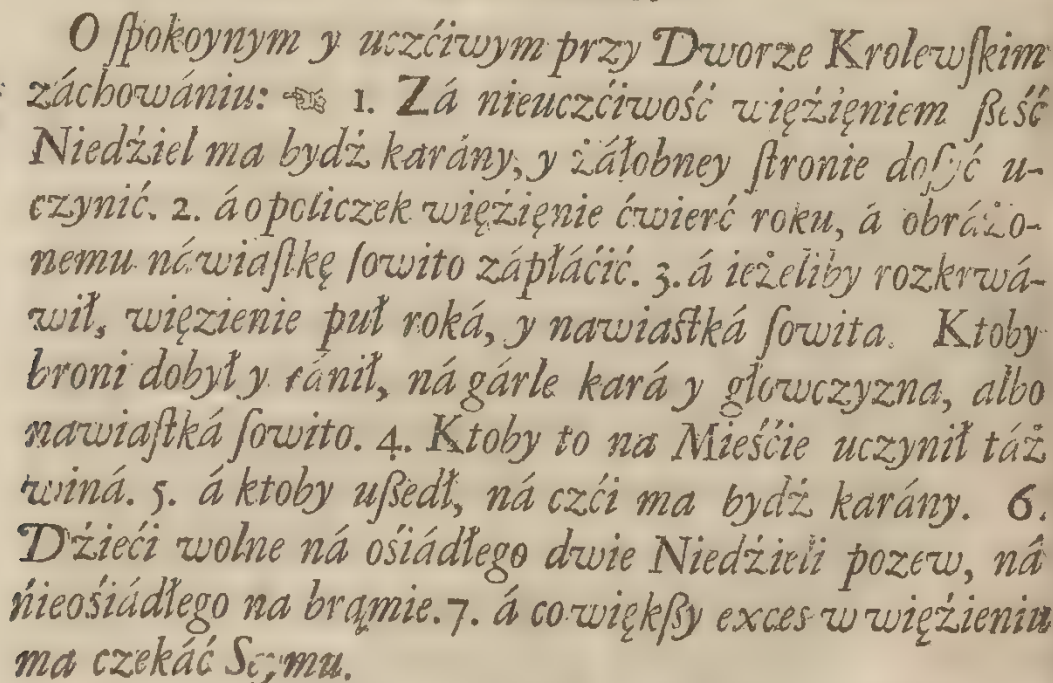 O ſpokoynym y uczćiwym przy Dworze Krolewſkim
záchowániu: ☜ 1. Zá nieuczćiwość więźięniem ßeść
Niedźiel ma bydź karány, y żáłobney ſtronie doſyć u-
czynić. 2. á o policzek więźięnie ćwierć roku, á obráżo-
nemu náwiaſtkę ſowito zápłáćić. 3. á ieżeliby rozkrwá-
wił, więzienie puł roká, y nawiaſtká ſowita. Ktoby
broni dobył y ránił, ná gárle kará y głowczyzna, albo
nawiaſtká ſowito. 4. Ktoby to na Mieśćie uczynił táż
winá. 5. á ktoby ußedł, ná czći ma bydź karány. 6.
Dźieći wolne ná ośiádłego dwie Niedźieli pozew, ná
ńieośiádłego na brąmie. 7. á co więkßy exces w więźieniu
ma czekáć Seymu.